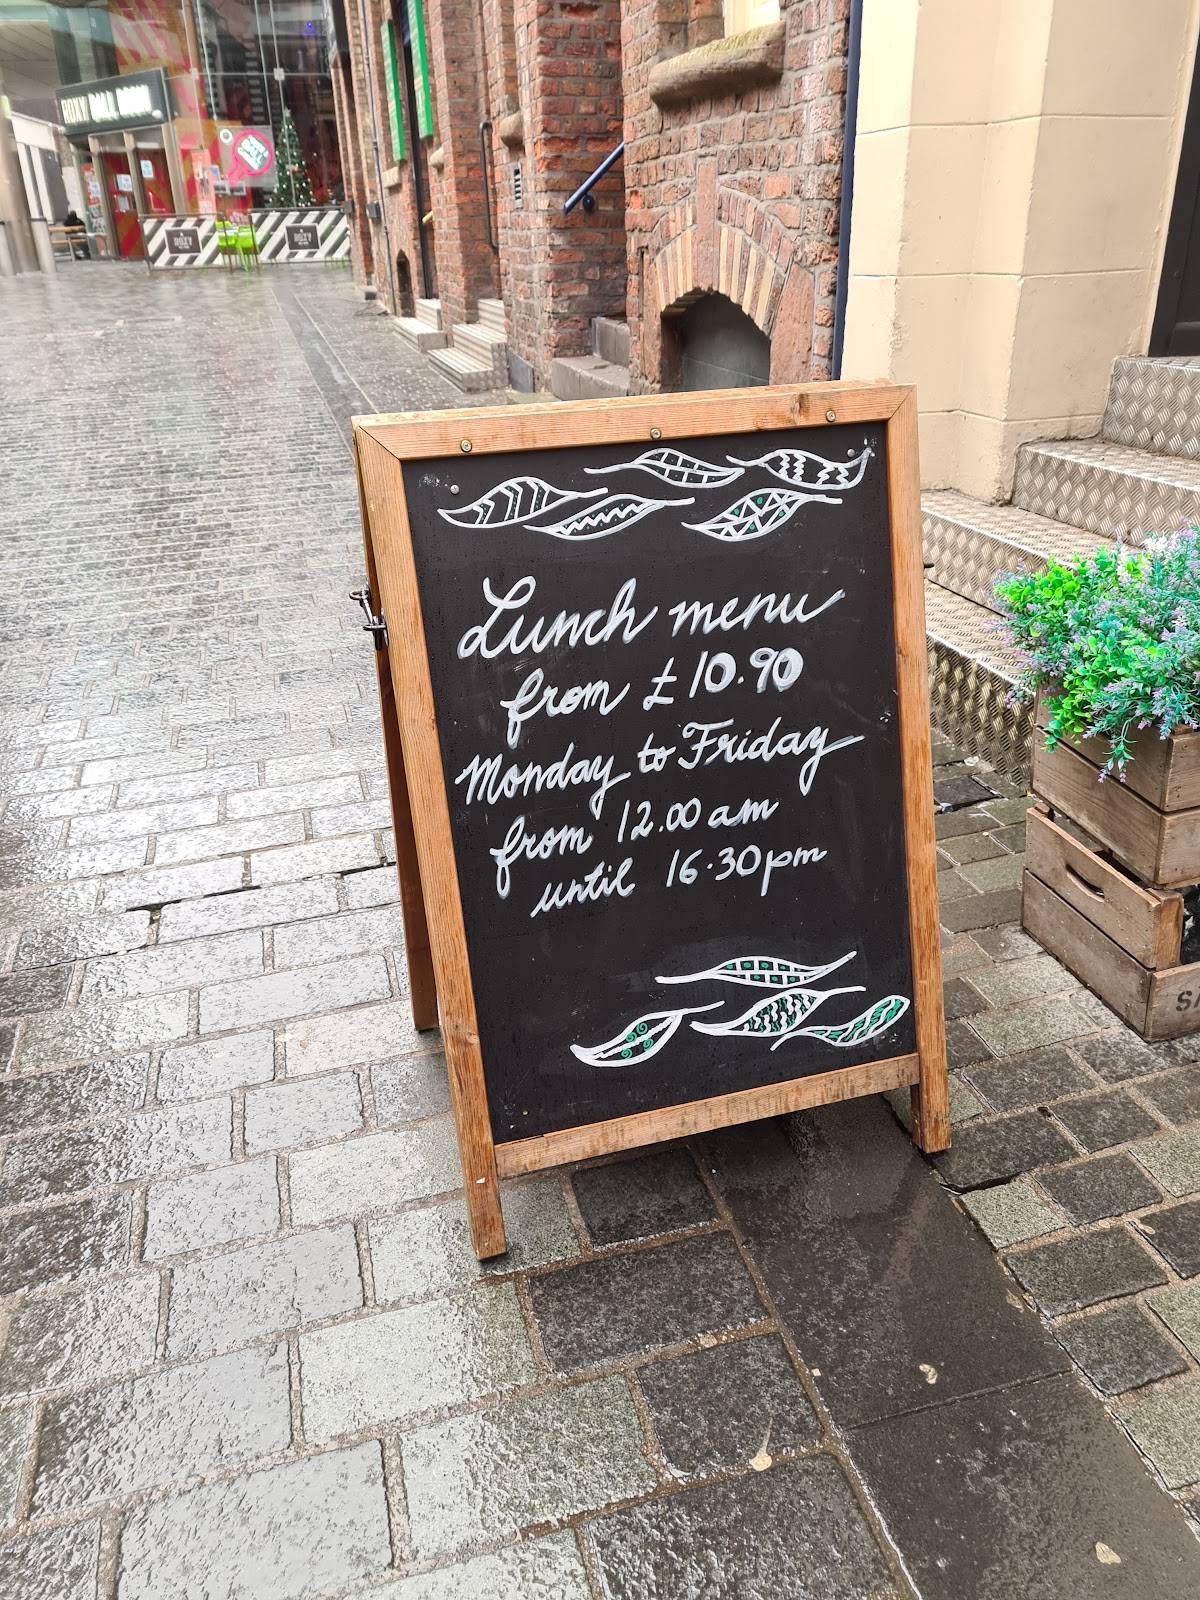 ROXY BALL ROOM
Lunch menu
from £10.90
Monday to Friday
from 12.00 am
until 16.30pm